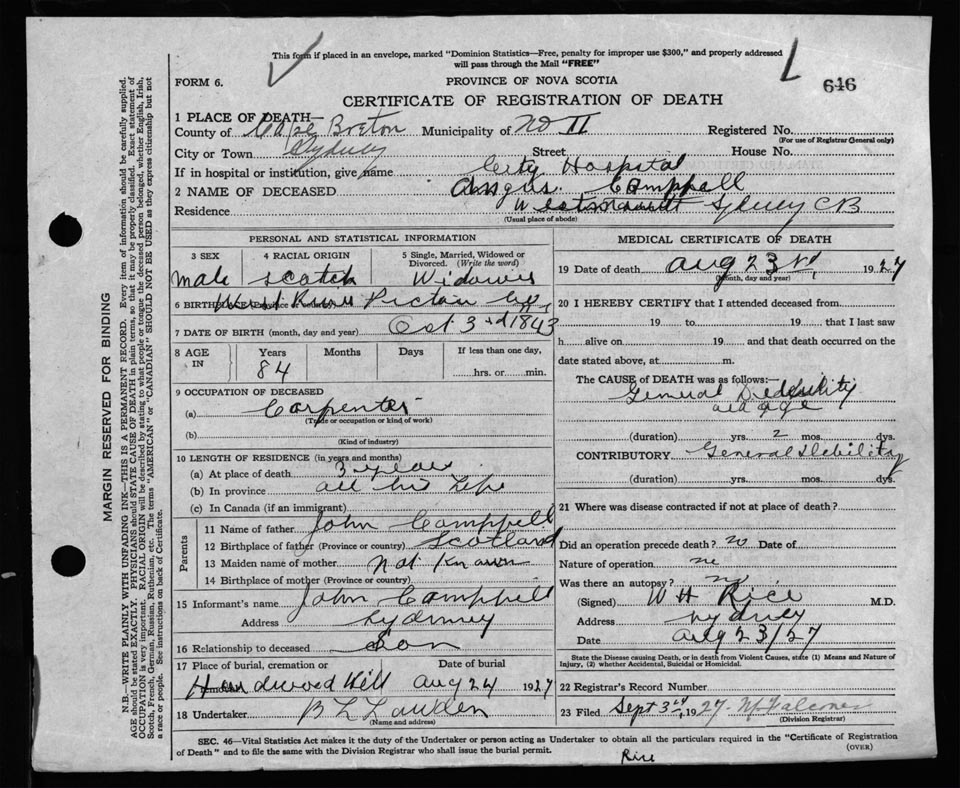 This form if placed in an envelope, marked "Dominion Statistics—Free, penalty for improper use $300," and properly addressed
will pass through the Mail "FREE"
FORM 6.
PROVINCE OF NOVA SCOTIA
646
CERTIFICATE OF REGISTRATION OF DEATH
1 PLACE OF DEATH—
County of Cape Breton Municipality of No II Registered No.
(For use of Registrar General only)
City or Town Sydney Street House No.
If in hospital or institution, give name City Hospital
2 NAME OF DECEASED Angus Camppell
Residence Westmount Sydney CB
(Usual place of abode)
PERSONAL AND STATISTICAL INFORMATION
3 SEX 4 RACIAL ORIGIN 5 Single, Married, Widowed or Divorced. (Write the word)
male scotch Widower
6 BIRTHPLACE West River Pictou
7 DATE OF BIRTH (month, day and year) Oct 3rd 1843
8 AGE IN Years Months Days If less than one day,
84 hrs. or min.
9 OCCUPATION OF DECEASED
(a) Carpenter
(Trade or occupation or kind of work)
(b)
(Kind of industry)
10 LENGTH OF RESIDENCE (in years and months)
(a) At place of death 3 years
(b) In province all his Life
(c) In Canada (if an immigrant)
Parents
11 Name of father John Camppell
12 Birthplace of father (Province or country) Scotland
13 Maiden name of mother Not Known
14 Birthplace of mother (Province or country)
15 Informant's name John Camppell
Address Sydney
16 Relationship to deceased Son
17 Place of burial, cremation or Date of burial
Hardwood Hill Aug 24 1927
18 Undertaker B L Lowden
(Name and address)
MEDICAL CERTIFICATE OF DEATH
19 Date of death Aug 23rd, 1927
(Month, day and year)
20 I HEREBY CERTIFY that I attended deceased from
19 to 19 that I last saw
h alive on 19 and that death occurred on the
date stated above, at m.
The CAUSE OF DEATH was as follows:—
General Debility
old age
(duration) yrs. 2 mos. dys.
CONTRIBUTORY General Debility
(duration) yrs. mos. dys.
21 Where was disease contracted if not at place of death?
Did an operation precede death? no Date of
Nature of operation no
Was there an autopsy? no
(Signed) W H Rice M.D.
Address Sydney
Date Aug 23/27
State the Disease causing Death, or in death from Violent Causes, state (1) Means and Nature of
Injury, (2) whether Accidental, Suicidal or Homicidal.
22 Registrar's Record Number
23 Filed Sept 3rd, 1927
(Division Registrar)
SEC. 46—Vital Statistics Act makes it the duty of the Undertaker or person acting as Undertaker to obtain all the particulars required in the "Certificate of Registration
of Death" and to file the same with the Division Registrar who shall issue the burial permit.
(OVER)
Rice
MARGIN RESERVED FOR BINDING
N.B.—WRITE PLAINLY WITH UNFADING INK—THIS IS A PERMANENT RECORD. Every item of information should be carefully supplied.
AGE should be stated EXACTLY. PHYSICIANS should STATE CAUSE OF DEATH in plain terms, so that it may be properly classified. Exact statement of
OCCUPATION is very important. RACIAL ORIGIN will be described by stating to what people or tongue the deceased person belonged, whether English, Irish,
Scotch, French, German, Russian, Ruthenian, etc. The terms "AMERICAN" or "CANADIAN" SHOULD NOT BE USED as they express citizenship but not
a race or people. See instructions on back of Certificate.